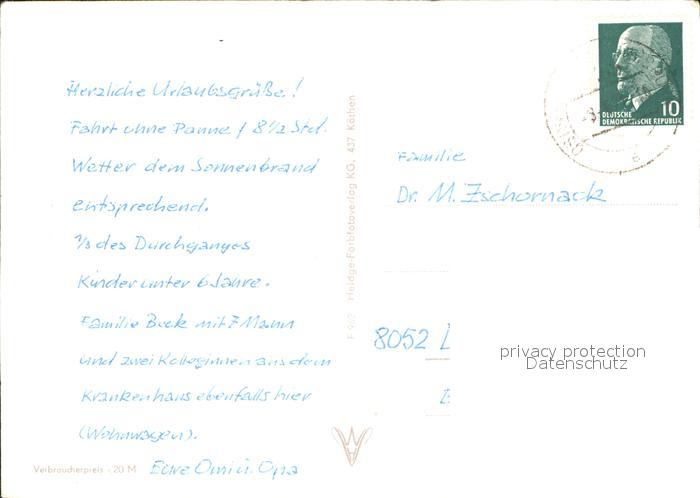 Herzliche Urlaubsgrüße!
Fahrt ohne Panne / 8 1/2 Std.
Wetter dem Sonnenbrand
entsprechend.
1/3 des Durchganges
Kinder unter 6 Jahre.
Familie Buck mit 7 Mann
und zwei Kolleginnen aus dem
Krankenhaus ebenfalls hier
(Wohnwagen).
Eure Omi u. Opa
Verbraucherpreis -,20 M
Heldge-Farbfotoverlag KG, 437 Köthen
10
DEUTSCHE
DEMOKRATISCHE REPUBLIK
Familie
Dr. M. Zschornack
8052 L
privacy protection
Datenschutz